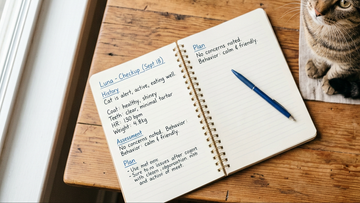 Luna - Checkup (Sept 18)
History
Cat is alert, active, eating well.
Coat: healthy, shiny
Teeth: clear, minimal tartar
HR: 150 bpm
Weight: 4.8kg
Assessment
No concerns noted. Behavior:
Behavior: calm & friendly.
Plan
• Use
• Sure to no issues after
with
and action of meat.
Plan
No concerns noted
Behavior: calm & friendly.